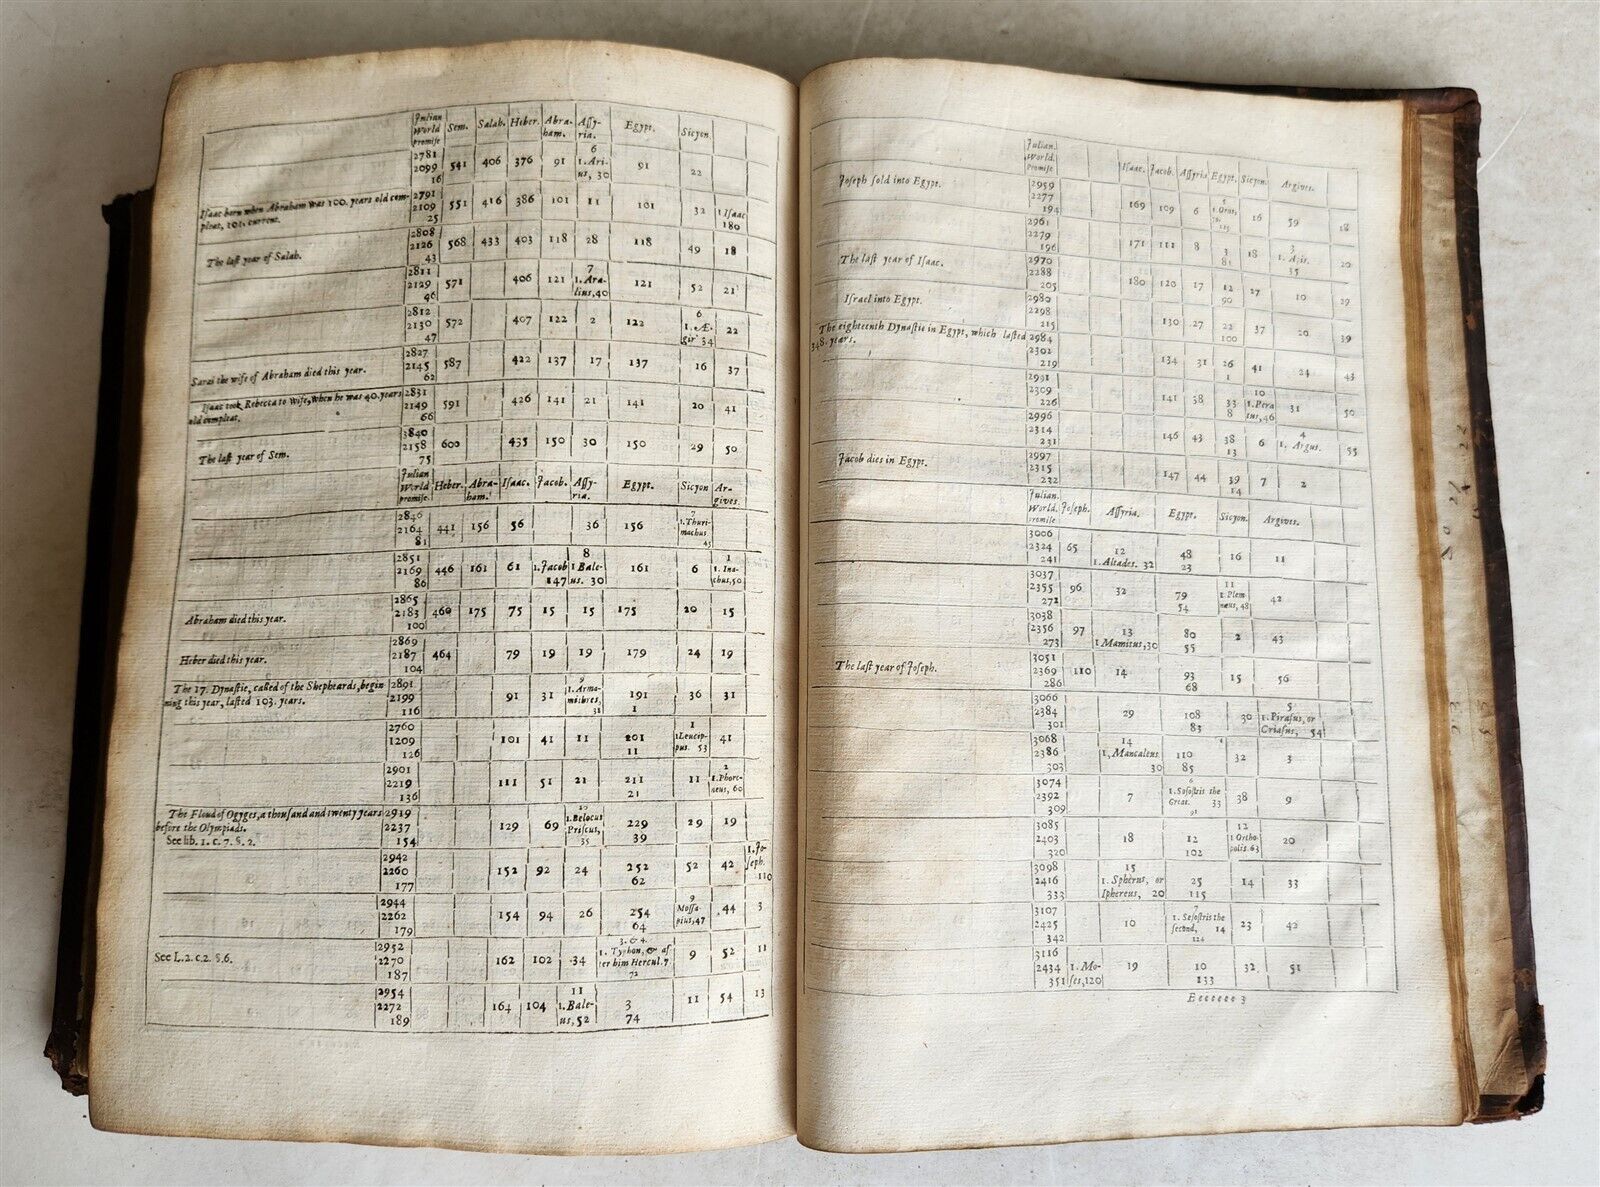 Julian
World Sem. Salah. Heber. Abra- Assy- Egypt. Sicyon
promise ham. ria.
2781 6
2099 541 406 376 91 1. Ari- 91 22
16 us, 30
Isaac born when Abraham was 100. years old com- 2791
pleat, 101. current. 2109 551 416 386 101 11 101 32 1 Isaac
25 180
2808
The last year of Salah. 2126 568 433 403 118 28 118 49 18
43
2811 7
2129 571 406 121 1. Ara- 121 52 21
46 lius, 40
2812 6
2130 572 407 122 2 122 1. Æ- 22
47 gir 34
2827
Sarai the wife of Abraham died this year. 2145 587 422 137 17 137 16 37
62
Isaac took Rebecca to wife, when he was 40. years 2831
old compleat. 2149 591 426 141 21 141 20 41
66
3840
The last year of Sem. 2158 600 435 150 30 150 29 50
75
Julian
World Heber. Abra- Isaac. Jacob. Assy- Egypt. Sicyon Ar-
promise. ham. ria. gives.
2846 7
2164 441 156 56 36 156 1. Thuri-
81 machus 45
2851 8 1
2169 446 161 61 1. Jacob 1 Bale- 161 6 1. Ina-
86 147 us. 30 chus, 50
2865
Abraham died this year. 2183 460 175 75 15 15 175 20 15
100
2869
Heber died this year. 2187 464 79 19 19 179 24 19
104
The 17. Dynastie, called of the Shepheards, begin 2891 9
ning this year, lasted 103. years. 2199 91 31 1. Arma- 191 36 31
116 mithres, 31 1
2760 1
1209 101 41 11 201 1 Leucip- 41
126 11 pus. 53
2901 2
2219 111 51 21 211 11 1. Phoro-
136 21 neus, 60
The Floud of Ogyges, a thousand and twenty years 2919 10
before the Olympiads. 2237 129 69 1. Belocus 229 29 19
See lib. 1. c. 7. §. 2. 154 Priscus, 35 39
2942 1. Jo-
2260 152 92 24 252 52 42 seph.
177 62 110
2944 9
2262 154 94 26 254 Messa- 44 3
179 64 pius, 47
2952 3. & 4.
See L. 2. c. 2. §. 6. 2270 162 102 34 1. Typhon, & af 9 52 11
187 ter him Hercul. 7
72
2954 11
2272 164 104 1. Bale- 3 11 54 13
189 us, 52 74
Julian.
World. Isaac. Jacob. Assyria Egypt. Sicyon. Argives.
Promise
Joseph sold into Egypt. 2959
2277 169 109 6 1. Orus, 16 59 18
194
2961 3
2279 171 111 8 3 18 1. Apis. 20
196 81 35
The last year of Isaac. 2970
2288 180 120 17 12 27 10 29
205 90
Israel into Egypt. 2980
2298 130 27 22 37 20 39
215 100
The eighteenth Dynastie in Egypt, which lasted 2984
348. years. 2302 134 31 26 41 24 43
219 1
2991 10
2309 141 38 33 1. Pera 31 50
226 8 tus, 46
2996 4
2314 146 43 38 6 1. Argus. 55
231 13
Jacob dies in Egypt. 2997
2315 147 44 39 7 2
232 14
Julian.
World. Joseph. Assyria. Egypt. Sicyon. Argives.
Promise
3006
2324 65 12 48 16 11
241 1. Altades. 32 23
3037 11
2355 96 32 79 1. Plem- 42
272 54 neus, 48
3038
2356 97 13 80 2 43
273 1 Mamitus, 30 55
3051
The last year of Joseph. 2369 110 14 93 15 56
286 68
3066 5
2384 29 108 30 1. Pirasus, or
301 83 Criasus, 54
3068 14
2386 1, Mancaleus 110 32 3
303 30 85
3074 6
2392 7 1. Sesostris the 38 9
309 Great. 33
91
3085 12
2403 18 12 1 Ortho- 20
320 102 polis. 63
3098 15
2416 1. Spherus, or 25 14 33
333 Iphereus, 20 115
3107 7
2425 10 1. Sesostris the 23 42
342 second, 14
124
3116
2434 1. Mo- 19 10 32 51
351 ses, 120 133
Eeeeeee 3